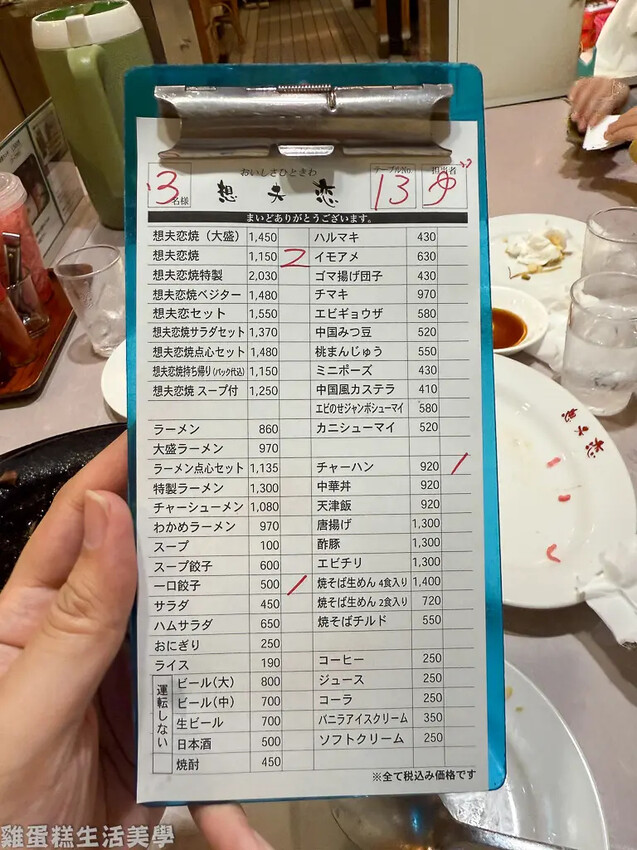 おいしさひときわ
想夫恋
3名様
テーブルNo. 13
担当者 ゆ
まいどありがとうございます。
想夫恋焼（大盛） 1,450
想夫恋焼 1,150 2
想夫恋焼特製 2,030
想夫恋焼ベジター 1,480
想夫恋セット 1,550
想夫恋焼サラダセット 1,370
想夫恋焼点心セット 1,480
想夫恋焼持ち帰り(パック代込) 1,150
想夫恋焼 スープ付 1,250
ラーメン 860
大盛ラーメン 970
ラーメン点心セット 1,135
特製ラーメン 1,300
チャーシューメン 1,080
わかめラーメン 970
スープ 100
スープ餃子 600
一口餃子 500 /
サラダ 450
ハムサラダ 650
おにぎり 250
ライス 190
運転しない
ビール(大) 800
ビール(中) 700
生ビール 700
日本酒 500
焼酎 450
ハルマキ 430
イモアメ 630
ゴマ揚げ団子 430
チマキ 970
エビギョウザ 580
中国みつ豆 520
桃まんじゅう 550
ミニポーズ 430
中国風カステラ 410
エビのせジャンボシューマイ 580
カニシューマイ 520
チャーハン 920 /
中華丼 920
天津飯 920
唐揚げ 1,300
酢豚 1,300
エビチリ 1,300
焼そば生めん 4食入り 1,400
焼そば生めん 2食入り 720
焼そばチルド 550
コーヒー 250
ジュース 250
コーラ 250
バニラアイスクリーム 350
ソフトクリーム 250
※全て税込み価格です
想夫恋
雞蛋糕生活美學